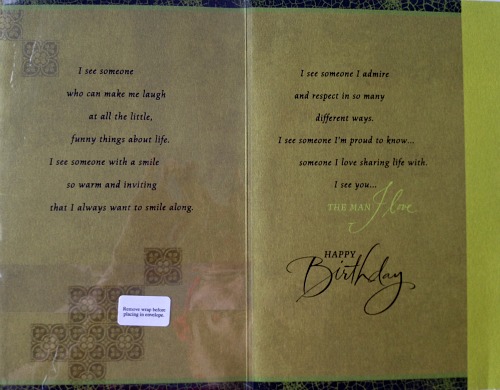 I see someone
who can make me laugh
at all the little,
funny things about life.
I see someone with a smile
so warm and inviting
that I always want to smile along.
Remove wrap before
placing in envelope.
I see someone I admire
and respect in so many
different ways.
I see someone I'm proud to know...
someone I love sharing life with.
I see you...
THE MAN I love
HAPPY
Birthday